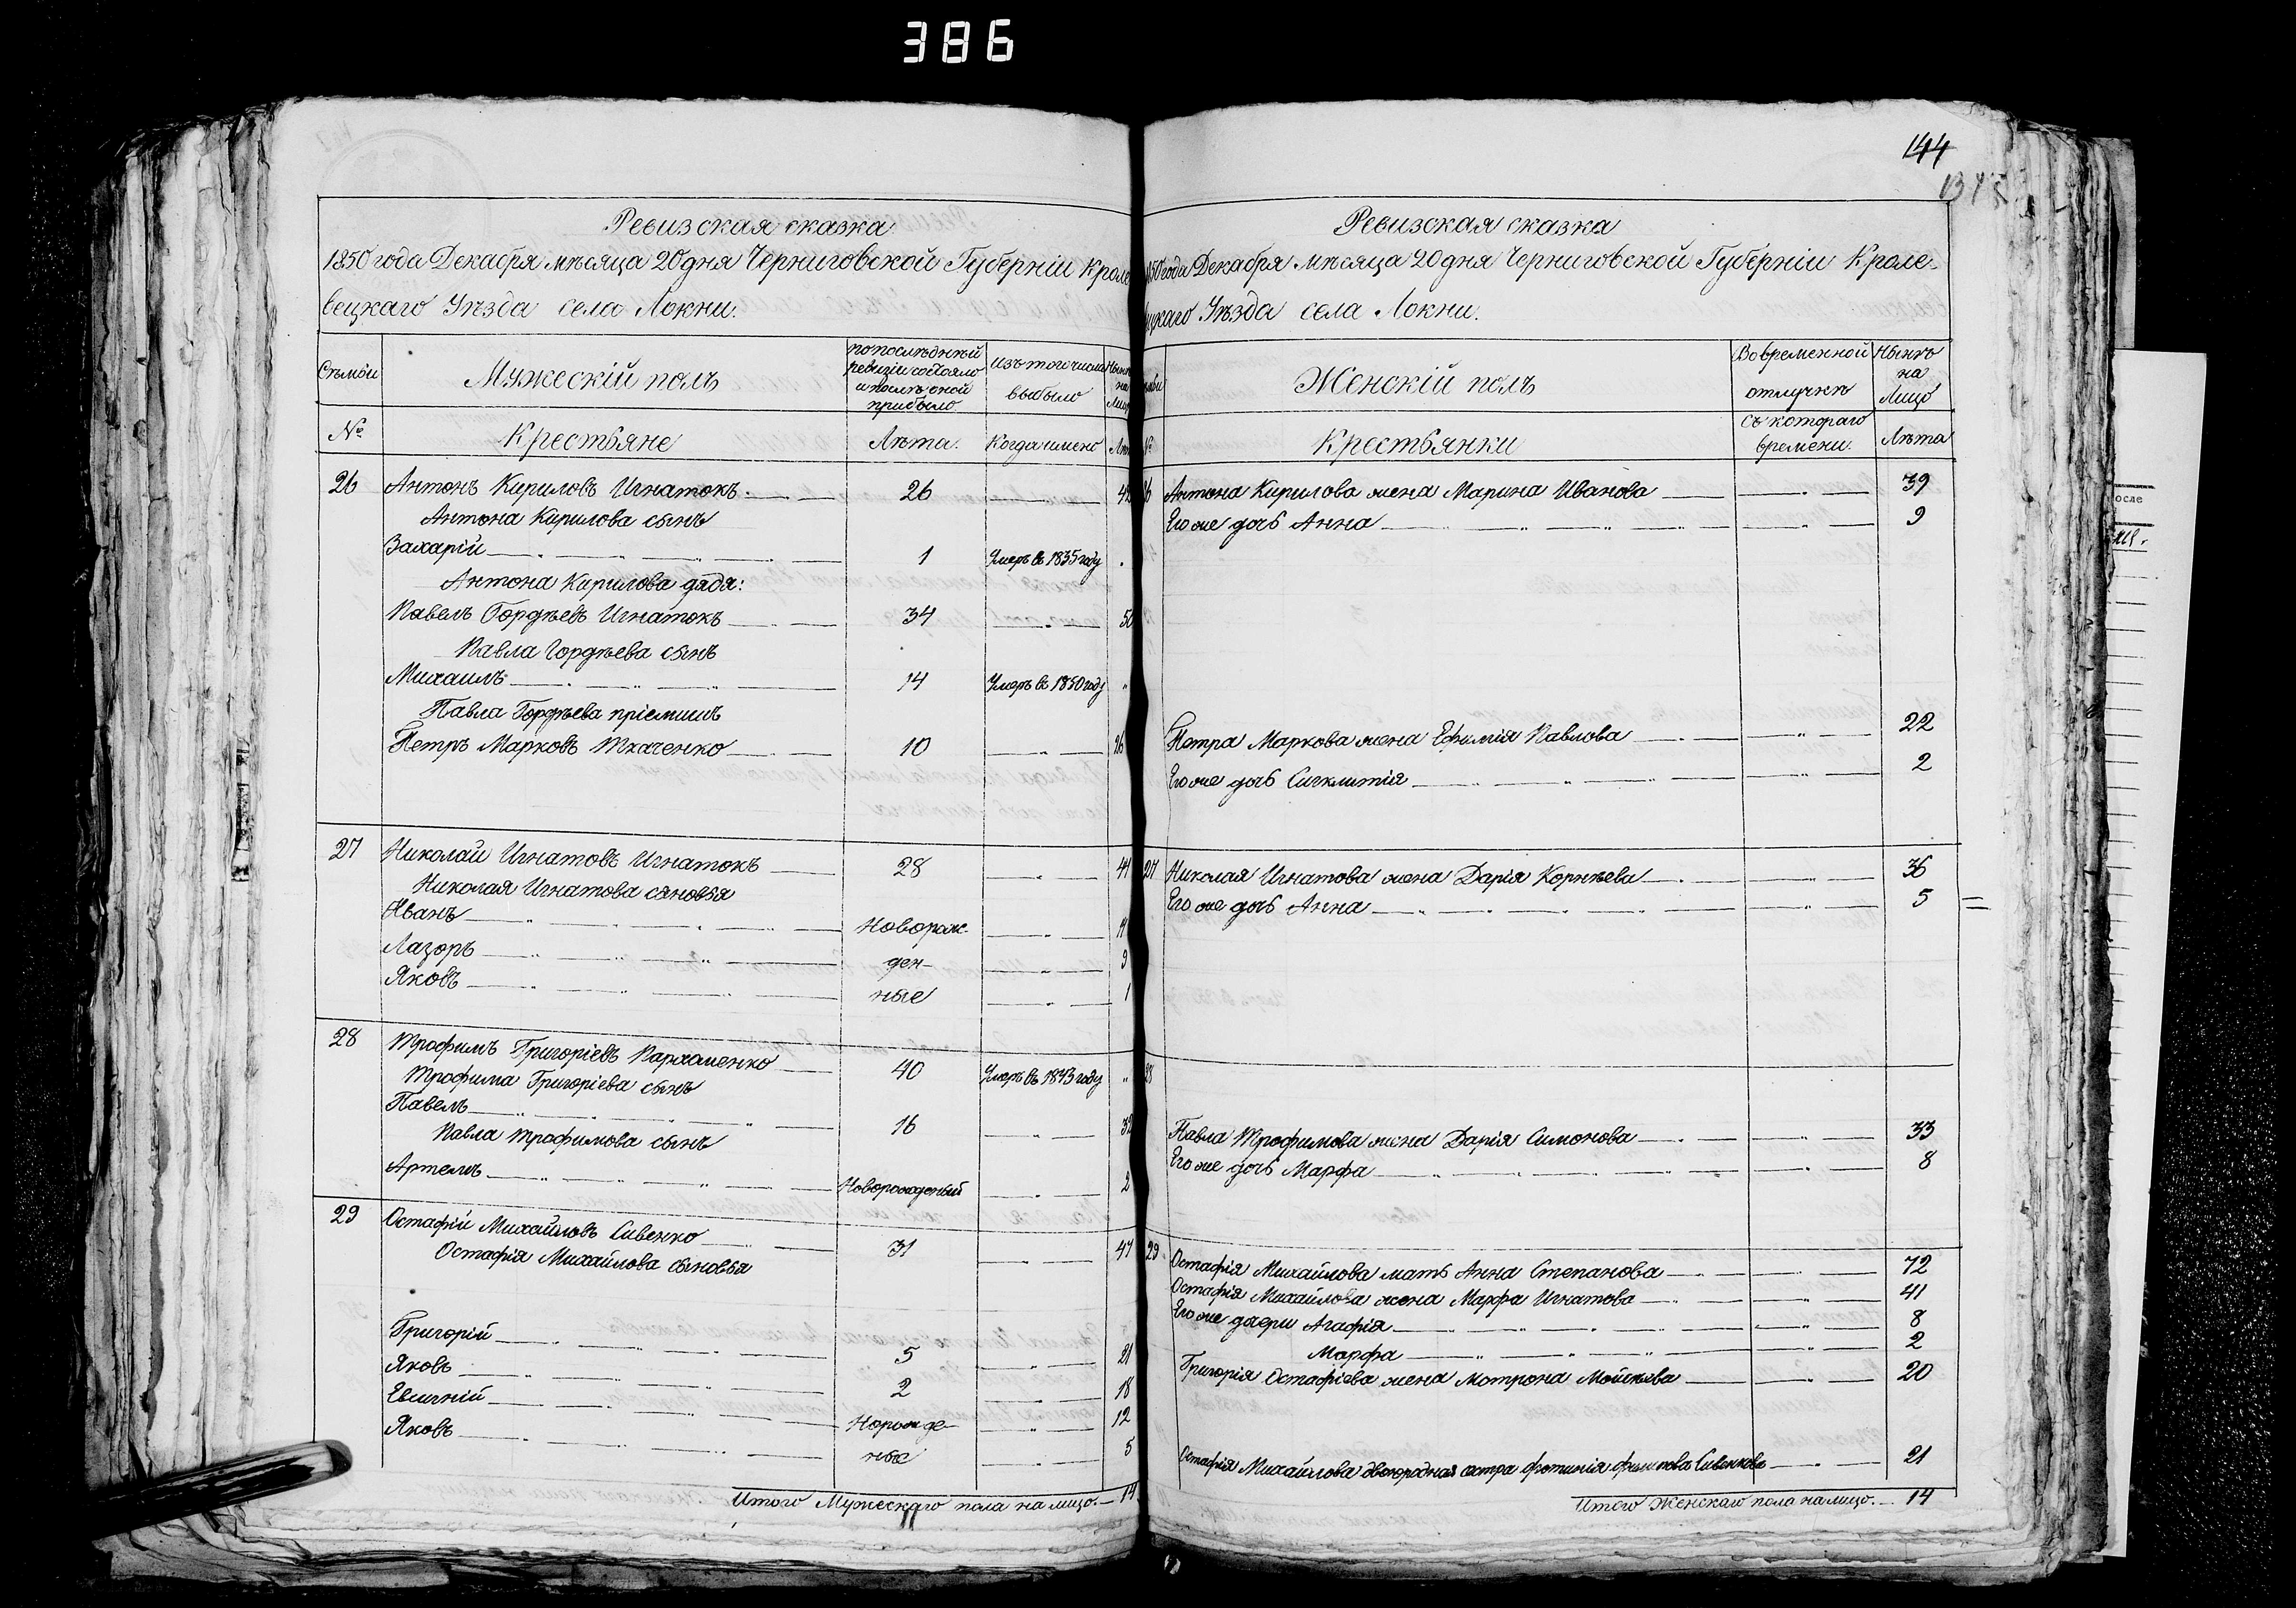 386
Ревизская сказка
1850 года Декабря мѣсяца 20 дня Черниговской Губерніи Кроле
вецкаго Уѣзда села Локни.
Мужескій полъ
по послѣдней ревизіи состояло и послѣ оной прибыло
Изъ того числа выбыло
№ Крестьяне Лѣта. Когда имено
26 Антонъ Кириловъ Игнатокъ. 26 42
Антона Кирилова сынъ
Захарій 1 Умеръ въ 1835 году
Антона Кирилова дядя:
Павелъ Гордѣевъ Игнатокъ 34 50
Павла Гордѣева сынъ
Михаилъ 14 Умеръ въ 1850 году
Павла Гордѣева пріемишъ
Петръ Марковъ Ткаченко 10 26
27 Николай Игнатовъ Игнатокъ 28 41
Николая Игнатова сыновья
Иванъ Новорож-
Лазоръ ден- 9
Яковъ ные 1
28 Трофимъ Григоріевъ Пархоменко 40 Умеръ въ 1843 году
Трофима Григоріева сынъ
Павелъ 16 32
Павла Трофимова сынъ
Артемъ Новорожденый 2
29 Остафій Михайловъ Сивенко 31 47
Остафія Михайлова сыновья
Григорій 5 21
Яковъ 2 18
Евгичній Норожде- 12
Яковъ ные 5
Итого Мужескаго пола на лицо. 14
144
Ревизская сказка
1850 года Декабря мѣсяца 20 дня Черниговской Губерніи Кроле-
вецкаго Уѣзда села Локни.
Женскій полъ
Во временной отлучкѣ
Нынѣ на Лицо
№ Крестьянки Съ котораго времени. Лѣта
26 Антона Кирилова жена Марина Иванова 39
Его же дочь Анна 9
Петра Маркова жена Ефимія Павлова 22
Его же дочь Сигклитія 2
27 Николая Игнатова жена Дарія Корнѣева 36
Его же дочь Анна 5
28
Павла Трофимова жена Дарія Симонова 33
Его же дочь Марфа 8
29 Остафія Михайлова мать Анна Степанова 72
Остафія Михайлова жена Марфа Игнатова 41
Его же дчери Агафія 8
Марфа 2
Григорія Остафіева жена Мотрона Мойсѣева 20
Остафія Михайлова двоюродная сестра Фотинія Сивенкова 21
Итого Женскаго пола на лицо. 14